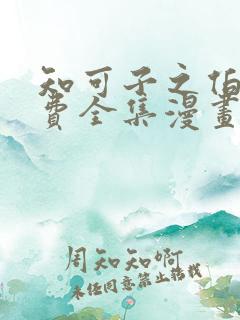 知可子之伯
费全集漫畫
周知知啊
未经同意禁止转载